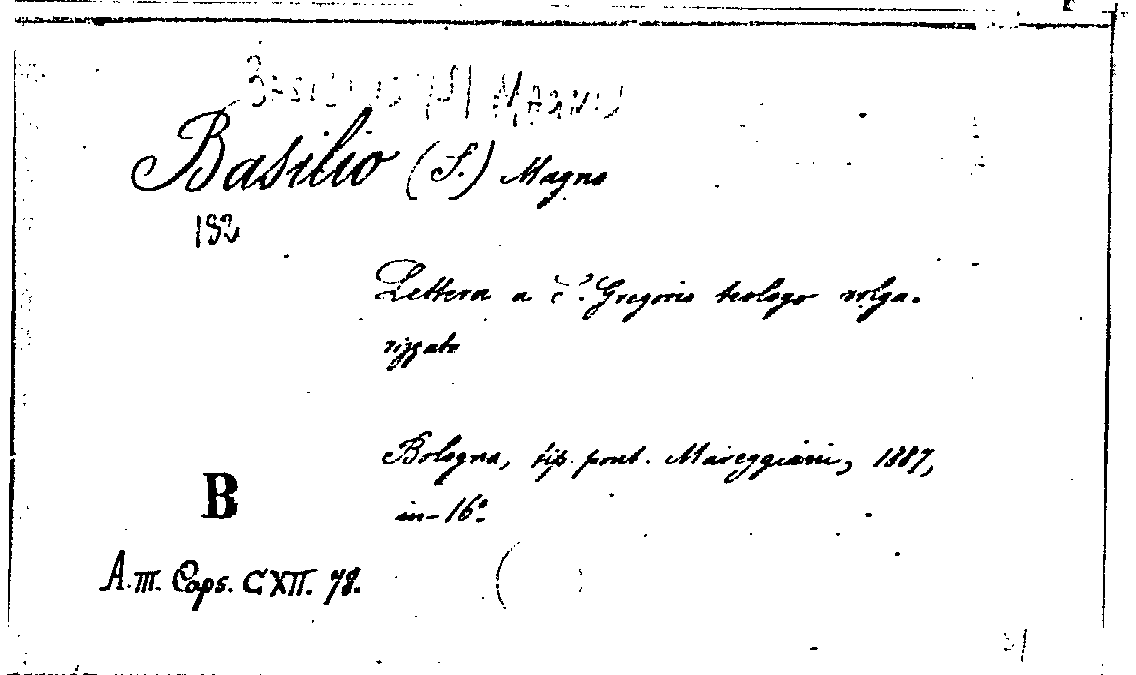 Basilio (S) Magno
Basilio (S.) Magno
192
Lettera a S. Gregorio teologo volga-
rizzato
Bologna, tip. pont. Mareggiani, 1887,
in-16º
B
A. III. Caps. CXII. 78.